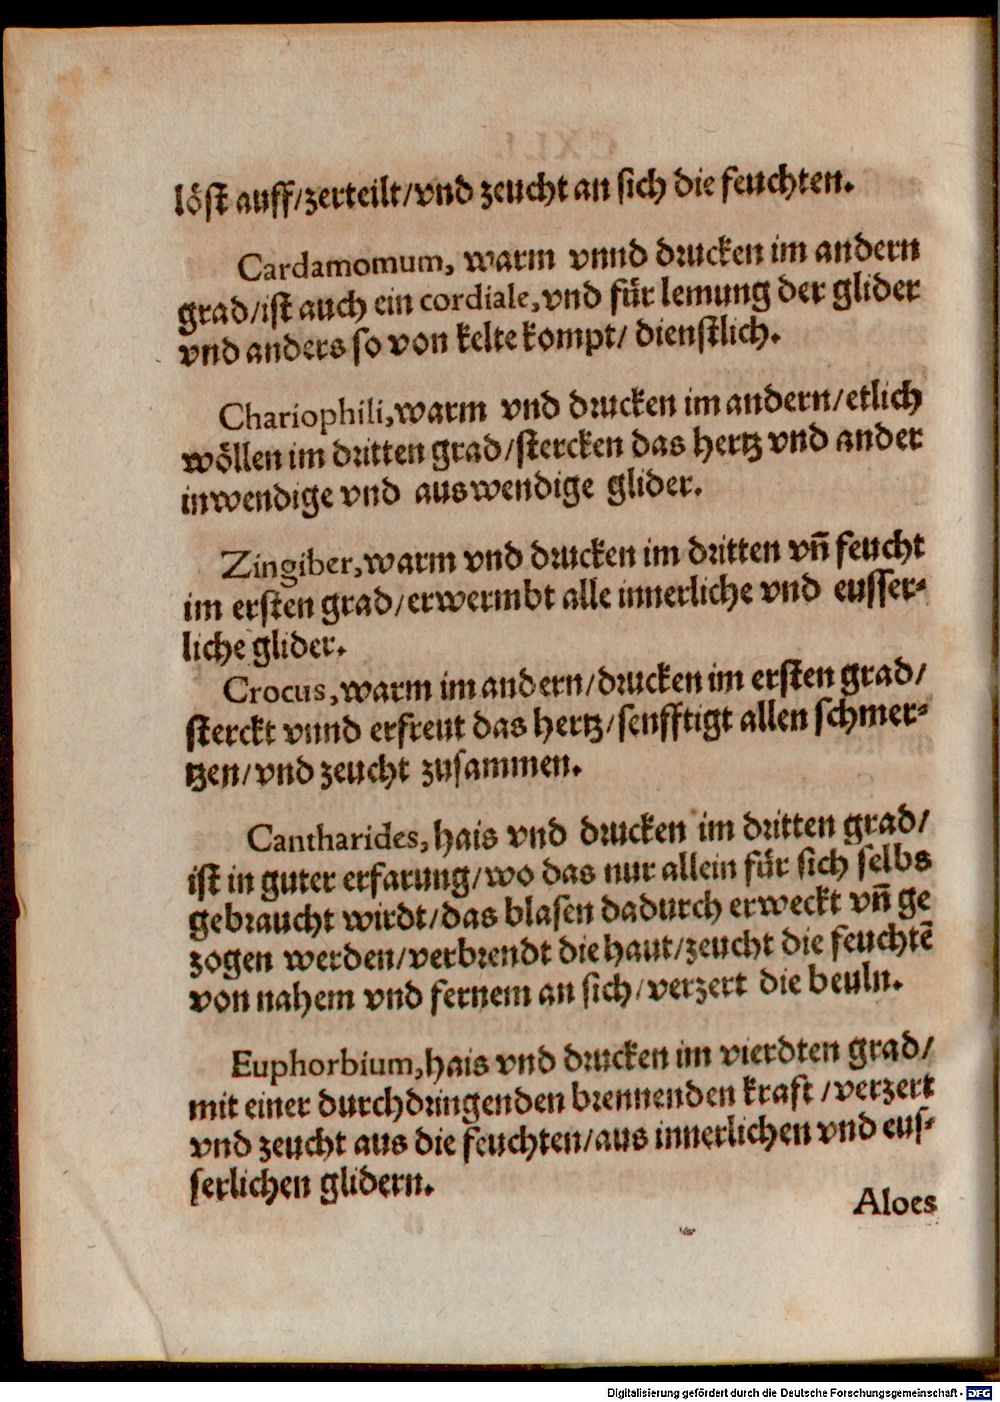 löst auff/zerteilt/vnd zeucht an sich die feuchten.
Cardamomum, warm vnnd drucken im andern
grad/ist auch ein cordiale,vnd für lemung der glider
vnd anders so von kelte kompt/ dienstlich.
Chariophili,warm vnd drucken im andern/etlich
wöllen im dritten grad/stercken das hertz vnd ander
inwendige vnd auswendige glider.
Zingiber,warm vnd drucken im dritten vñ feucht
im ersten grad/erwermbt alle innerliche vnd eusser-
liche glider.
Crocus,warm im andern/drucken im ersten grad/
sterckt vnnd erfreut das hertz/senfftigt allen schmer-
tzen/vnd zeucht zusammen.
Cantharides,hais vnd drucken im dritten grad/
ist in guter erfarung/wo das nur allein für sich selbs
gebraucht wirdt/das blasen dadurch erweckt vñ ge
zogen werden/verbrendt die haut/zeucht die feuchtē
von nahem vnd fernem an sich/verzert die beuln.
Euphorbium,hais vnd drucken im vierdten grad/
mit einer durchdringenden brennenden kraft/verzert
vnd zeucht aus die feuchten/aus innerlichen vnd eus-
serlichen glidern.
Aloes
Digitalisierung gefördert durch die Deutsche Forschungsgemeinschaft - DFG